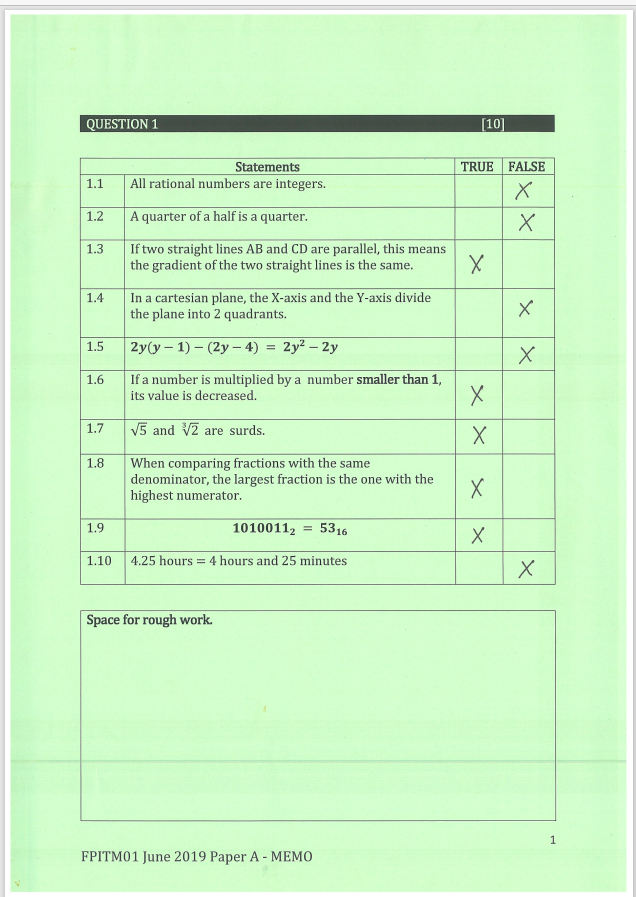 QUESTION 1 [10]
Statements TRUE FALSE
1.1 All rational numbers are integers. X
1.2 A quarter of a half is a quarter. X
1.3 If two straight lines AB and CD are parallel, this means
the gradient of the two straight lines is the same. X
1.4 In a cartesian plane, the X-axis and the Y-axis divide
the plane into 2 quadrants. X
1.5 2y(y − 1) − (2y − 4) = 2y² − 2y X
1.6 If a number is multiplied by a number smaller than 1,
its value is decreased. X
1.7 √5 and ∛2 are surds. X
1.8 When comparing fractions with the same
denominator, the largest fraction is the one with the
highest numerator. X
1.9 1010011₂ = 53₁₆ X
1.10 4.25 hours = 4 hours and 25 minutes X
Space for rough work.
1
FPITM01 June 2019 Paper A - MEMO